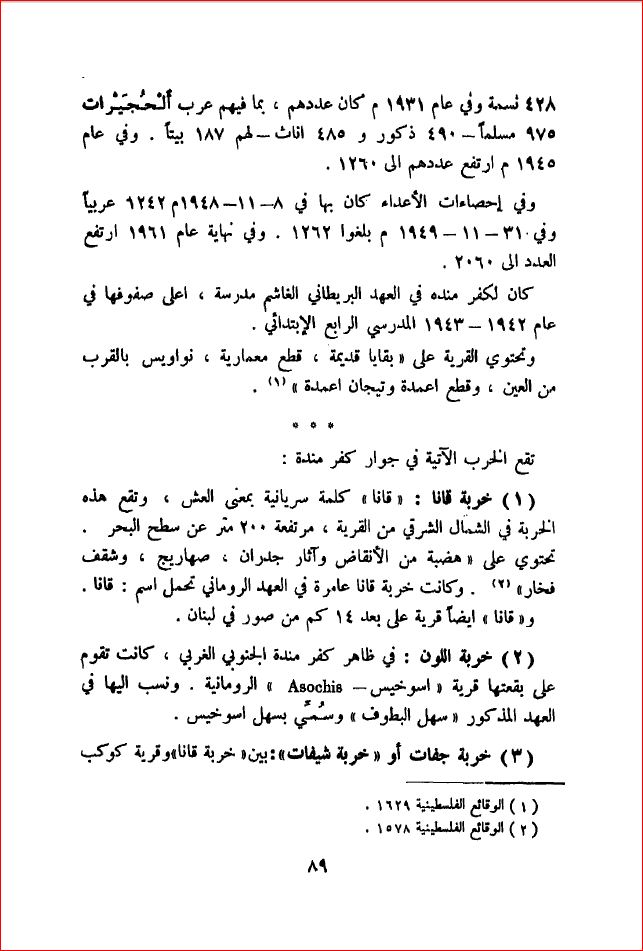 ٤٢٨ نسمة وفي عام ١٩٣١ م كان عددهم ، بما فيهم عرب أَلْحُجَيْرات
٩٧٥ مسلماً – ٤٩٠ ذكور و ٤٨٥ اناث – لهم ١٨٧ بيتاً . وفي عام
١٩٤٥ م ارتفع عددهم الى ١٢٦٠ .
وفي إحصاءات الأعداء كان بها في ٨ – ١١ – ١٩٤٨م ١٢٤٢ عربياً
وفي ٣١ – ١١ – ١٩٤٩ م بلغوا ١٢٦٢ . وفي نهاية عام ١٩٦١ ارتفع
العدد الى ٢٠٦٠ .
كان لكفر منده في العهد البريطاني الغاشم مدرسة ، اعلى صفوفها في
عام ١٩٤٢ – ١٩٤٣ المدرسي الرابع الإبتدائي .
وتحتوي القرية على « بقايا قديمة ، قطع معمارية ، نواويس بالقرب
من العين ، وقطع اعمدة وتيجان اعمدة » (١) .
* * *
تقع الخرب الآتية في جوار كفر مندة :
(١) خربة قانا : « قانا » كلمة سريانية بمعنى العش ، وتقع هذه
الخربة في الشمال الشرقي من القرية ، مرتفعة ٢٠٠ متر عن سطح البحر .
تحتوي على « هضبة من الأنقاض وآثار جدران ، صهاريج ، وشقف
فخار» (٢) . وكانت خربة قانا عامرة في العهد الروماني تحمل اسم : قانا .
و« قانا » ايضاً قرية على بعد ١٤ كم من صور في لبنان .
(٢) خربة اللون : في ظاهر كفر مندة الجنوبي الغربي ، كانت تقوم
على بقعتها قرية « اسوخيس – Asochis » الرومانية . ونسب اليها في
العهد المذكور « سهل البطوف » وسُمّي بسهل اسوخيس .
(٣) خربة جفات أو « خربة شيفات»: بين« خربة قانا»وقرية كوكب
(١) الوقائع الفلسطينية ١٦٢٩ .
(٢) الوقائع الفلسطينية ١٥٧٨ .
٨٩